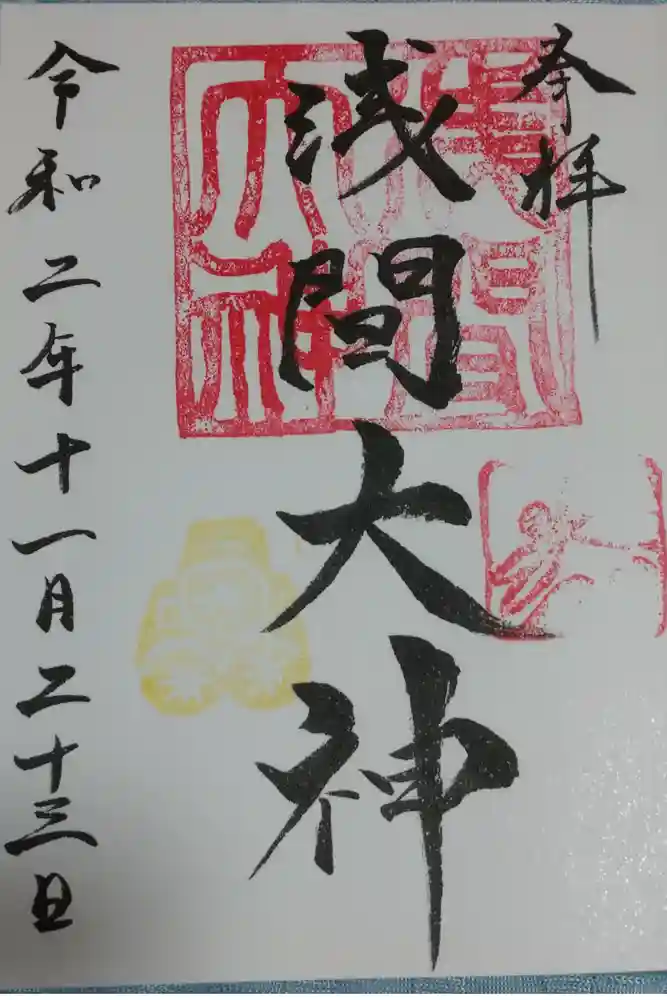 奉拝
浅間大神
浅間大神
令和二年十一月二十三日